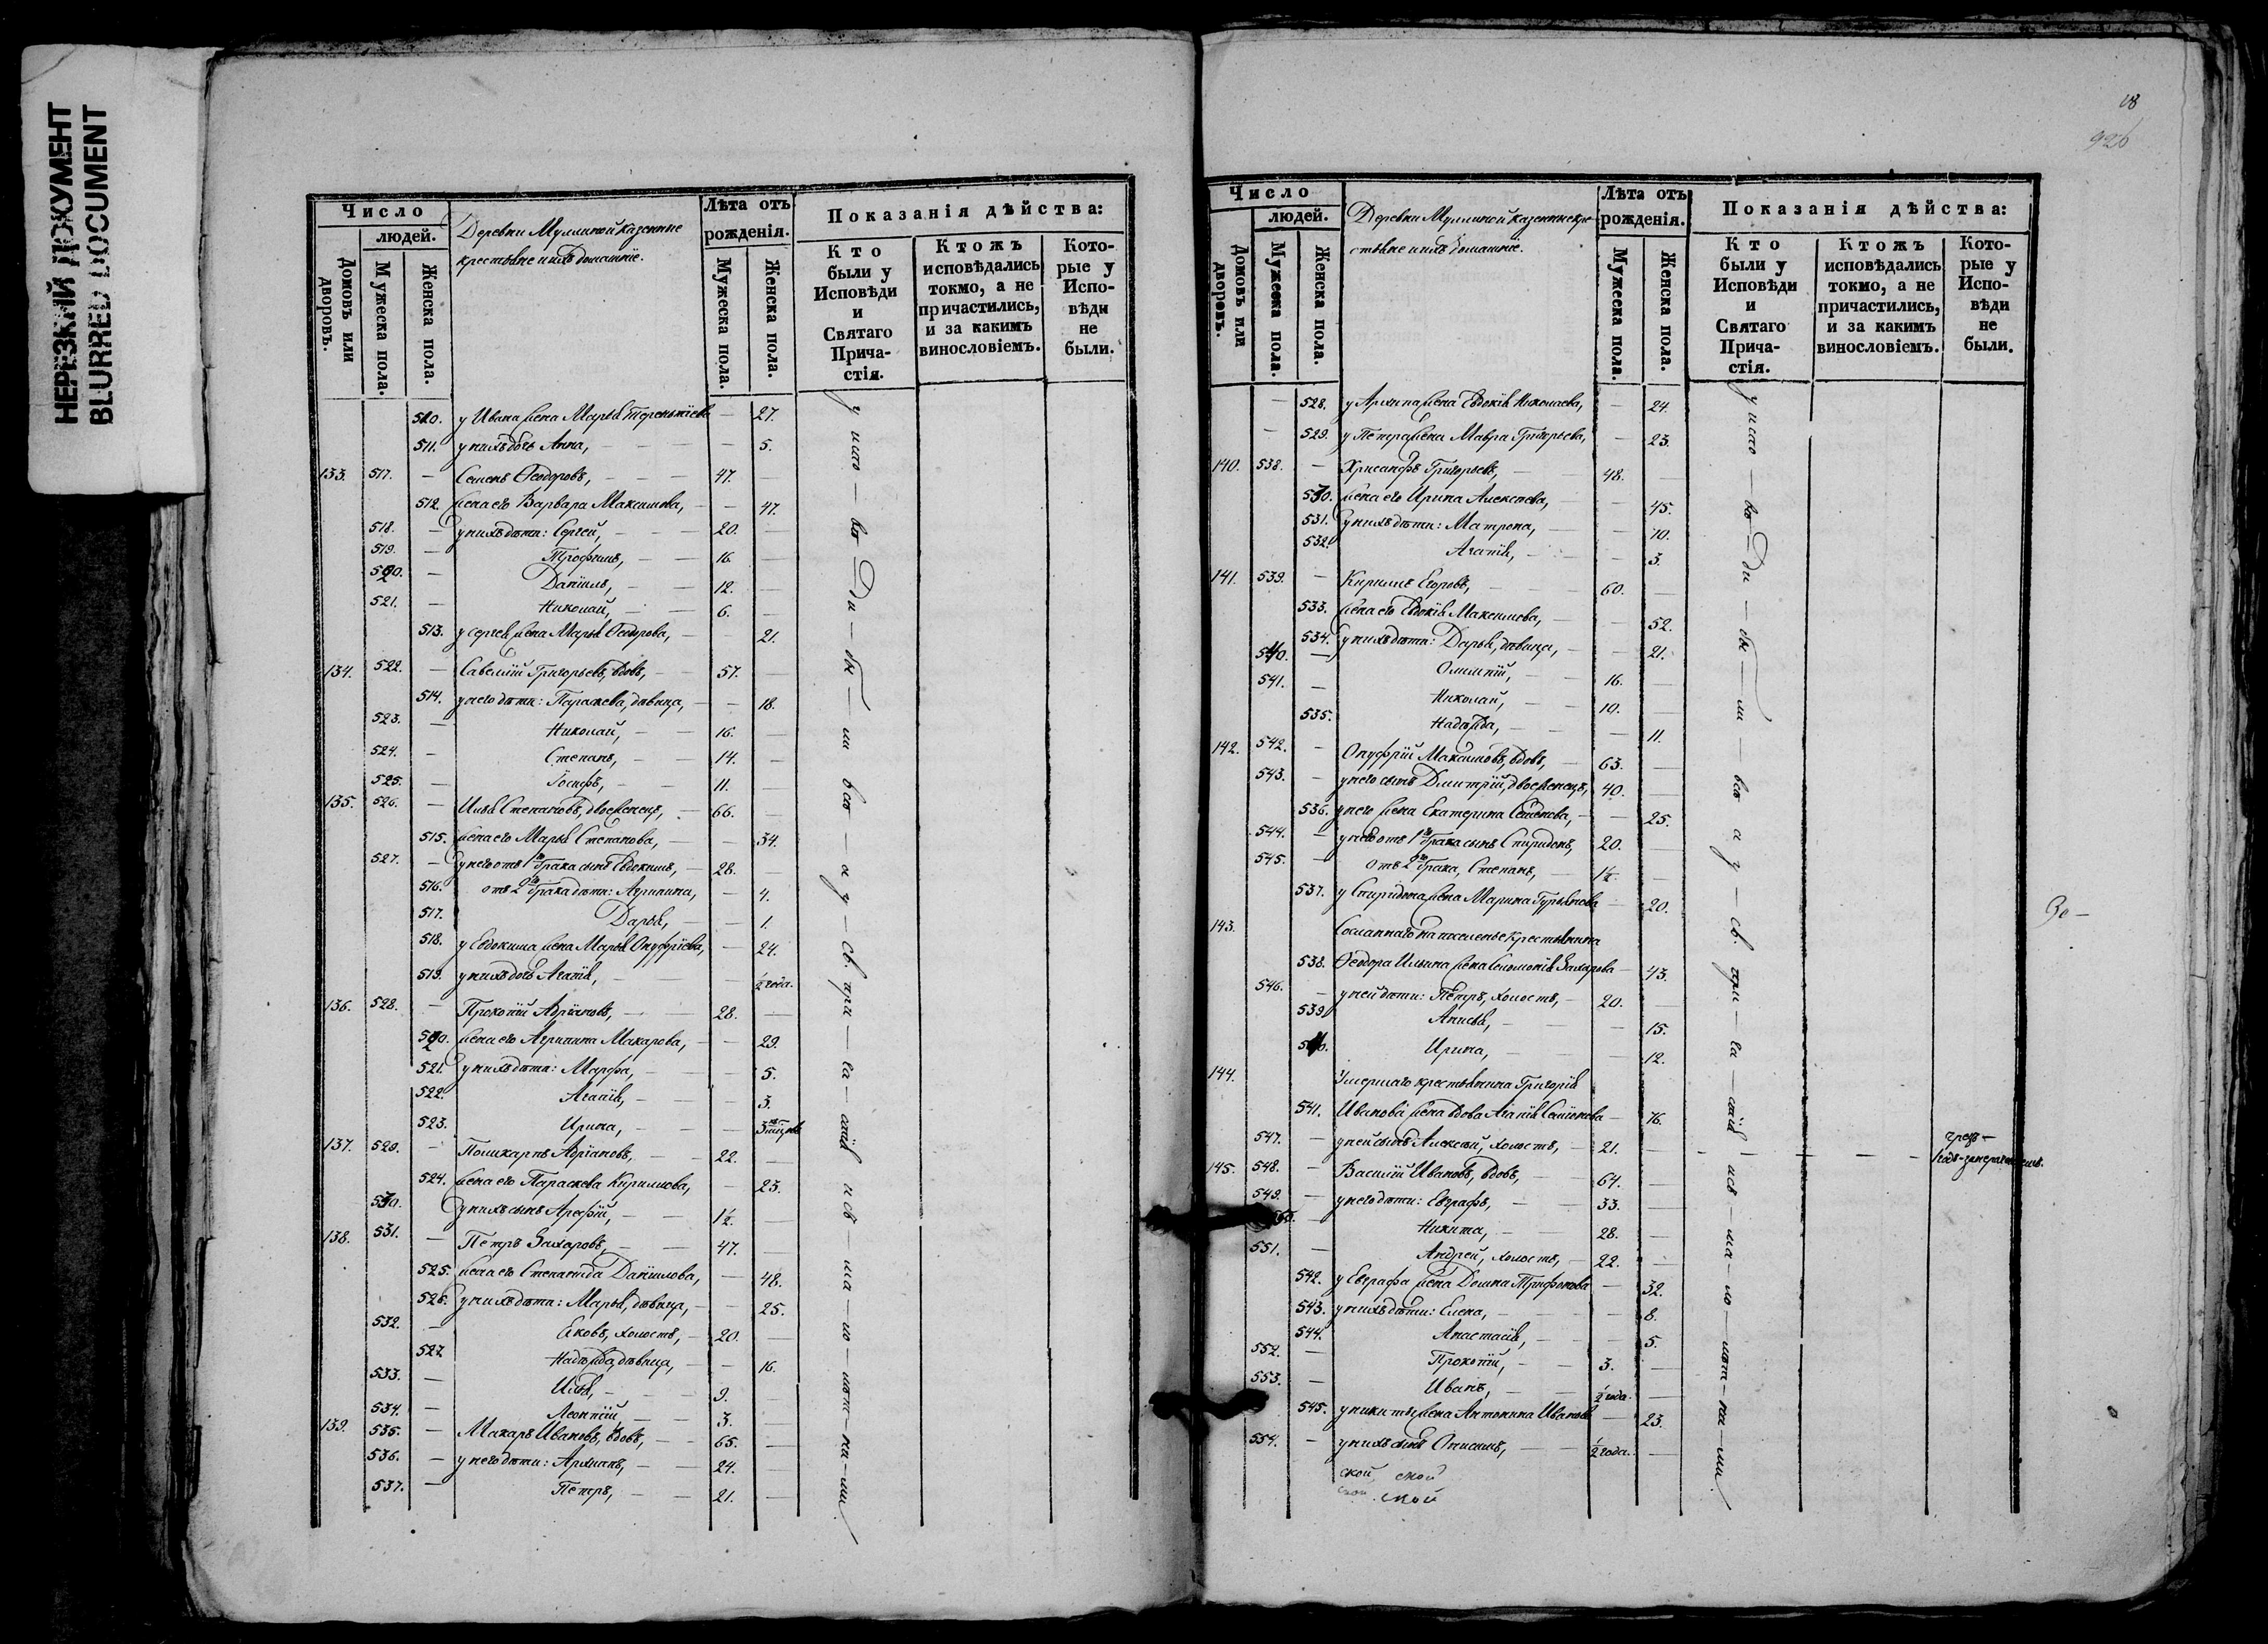 НЕРЕЗКИЙ ДОКУМЕНТ
BLURRED DOCUMENT
Число
людей.
Домовъ или дворовъ.
Мужеска пола.
Женска пола.
Деревни Муллиной казенные
крестьяне и ихъ домашнїе.
Лѣта отъ рожденія.
Мужеска пола.
Женска пола.
Показанія дѣйства:
Кто были у Исповѣди и Святаго Причастія.
Ктожъ исповѣдались токмо, а не причастились, и за какимъ винословіемъ.
Которые у Исповѣди не были.
510. у Ивана жена Марья Терентьева — 27.
511. у нихъ дочь Анна, — 5.
133. 517. — Семенъ Ѳеодоровъ, — 47. —
512. жена его Варвара Максимова, — 47.
518. — у нихъ дѣти: Сергей, — 20. —
519. — Трофимъ, — 16. —
520. — Данїилъ, — 12. —
521. — Николай, — 6. —
513. у Сергея жена Марья Ѳеодорова, — 21.
134. 522. — Савелїй Григорьевъ, вдовъ, — 57. —
514. у него дѣти: Параскева, дѣвица, — 18.
523. — Николай, — 16. —
524. — Степанъ, — 14. —
525. — Іосифъ, — 11. —
135. 526. — Илья Степановъ, двоеженецъ, — 66. —
515. жена его Марья Степанова, — 34.
527. — у него отъ 1го брака сынъ Евдокимъ, — 28. —
516. отъ 2го брака дѣти: Агрипина, — 4.
517. Дарья, — 1.
518. у Евдокима жена Марья Онуфрїева, — 24.
519. у нихъ дочь Агапїя, — ½ года.
136. 528. — Прокопїй Адрїановъ, — 28. —
520. жена его Агрипина Макарова, — 29.
521. у нихъ дѣти: Марфа, — 5.
522. Агапїя, — 3.
523. Ирина, —
137. 529. — Поликарпъ Адрїановъ, — 22. —
524. жена его Параскева Кирилова, — 23.
530. у нихъ сынъ Арефїй, — 1½. —
138. 531. — Петръ Захаровъ, — 47. —
525. жена его Степанида Данїилова, — 48.
526. у нихъ дѣти: Марья, дѣвица, — 25.
532. — Яковъ, холостъ, — 20. —
527. Надежда, дѣвица, — 16.
533. — Илья, — 9.
534. — Леонтїй, — 3. —
139. 535. — Макаръ Ивановъ, вдовъ, — 65. —
536. — у него дѣти: Архипъ, — 24. —
537. — Петръ, — 21. —
у испо — вѣ — ди — бы — ли всѣ — а у — св. при — ча — стїя
18
926
Число
людей.
Домовъ или дворовъ.
Мужеска пола.
Женска пола.
Деревни Муллиной казенные кре-
стьяне и ихъ домашнїе.
Лѣта отъ рожденія.
Мужеска пола.
Женска пола.
Показанія дѣйства:
Кто были у Исповѣди и Святаго Причастія.
Ктожъ исповѣдались токмо, а не причастились, и за какимъ винословіемъ.
Которые у Исповѣди не были.
— 528. у Архипа жена Евдокїя Николаева, — 24.
— 529. у Петра жена Мавра Григорьева, — 23.
140. 538. — Хрисанфъ Григорьевъ, — 48. —
530. жена его Ирина Алексѣева, — 45.
531. у нихъ дѣти: Матрона, — 10.
532. Агапїя, — 3.
141. 539. — Кирилъ Егоровъ, — 60. —
533. жена его Евдокїя Максимова, — 52.
534. у нихъ дѣти: Дарья, дѣвица, — 21.
540. — Олимпїй, — 16. —
541. — Николай, — 10. —
535. Надежда, — 11.
142. 542. — Онуфрїй Максимовъ, вдовъ, — 63. —
543. — у него сынъ Димитрїй, двоеженецъ, 40. —
536. у него жена Екатерина Семенова, — 25.
544. — у него отъ 1го брака сынъ Спиридонъ, 20. —
545. — отъ 2го брака, Степанъ, — 1½. —
537. у Спиридона жена Марина Гурьянова — 20.
143. Сосланнаго на поселенье крестьянина
538. Ѳеодора Ильина жена Соломонїя Захарова — 43.
546. — у ней дѣти: Петръ, холостъ, — 20. —
539. Анисья, — 15.
540. Ирина, — 12.
144. Умершаго крестьянина Григорїя
541. Иванова жена вдова Агапїя Семенова — 76.
547. — у ней сынъ Алексѣй, холостъ, — 21. —
145. 548. — Василїй Ивановъ, вдовъ, — 64. —
549. — у него дѣти: Евграфъ, — 33. —
550. — Никита, — 28. —
551. — Андрей, холостъ, — 22. —
542. у Евграфа жена Домна Трифонова — 32.
543. у нихъ дѣти: Елена, — 8.
544. Анастасїя, — 5.
552. — Прокопїй, — 3. —
553. — Иванъ, — ½ года. —
545. у Никиты жена Антонина Иванова — 23.
554. — у нихъ сынъ Онисимъ, — ½ года. —
ской, ской
ской. ской
у испо — вѣ — ди — бы — ли — всѣ а у — св. при — ча — стїя